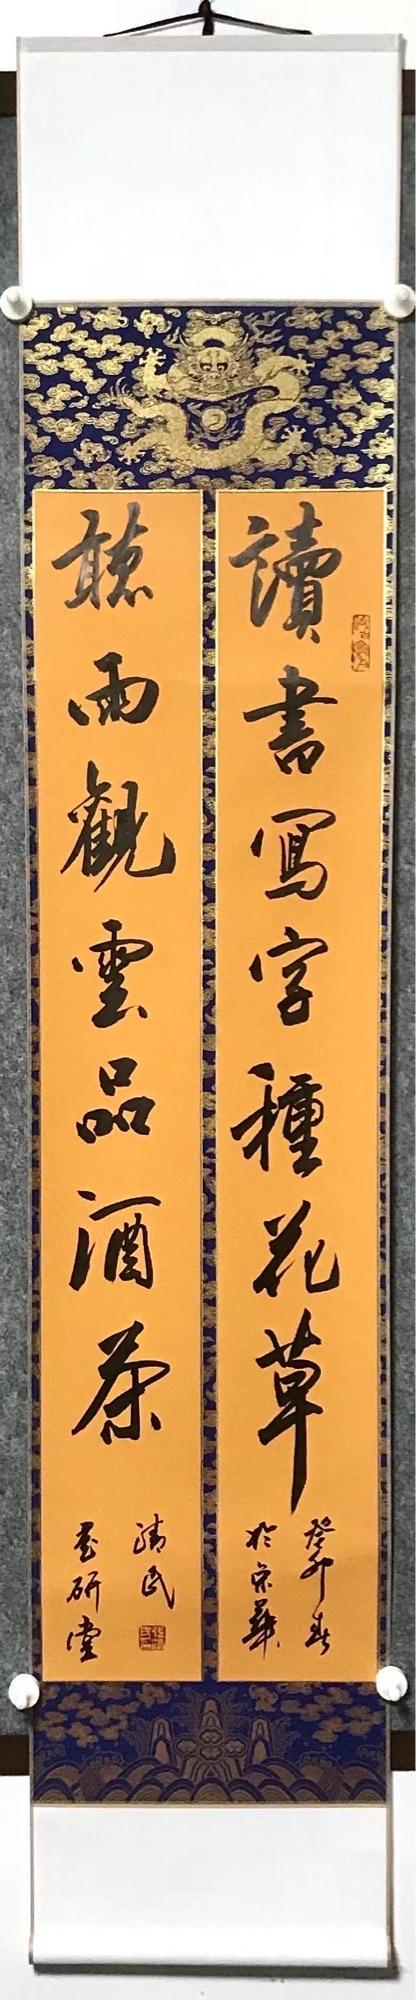 讀書寫字種花草
癸卯春
於京華
聽雨觀雲品酒茶
清民